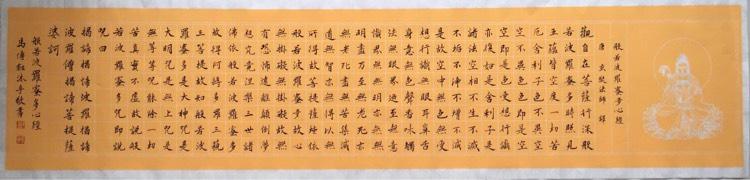 般若波羅蜜多心經
唐 玄奘法師 譯
觀自在菩薩行深般
若波羅蜜多時照見
五蘊皆空度一切苦
厄舍利子色不異空
空不異色色即是空
空即是色受想行識
亦復如是舍利子是
諸法空相不生不滅
不垢不淨不增不減
是故空中無色無受
想行識無眼耳鼻舌
身意無色聲香味觸
法無眼界乃至無意
識界無無明亦無無
明盡乃至無老死亦
無老死盡無苦集滅
道無智亦無得以無
所得故菩提薩埵依
般若波羅蜜多故心
無掛礙無掛礙故無
有恐怖遠離顛倒夢
想究竟涅槃三世諸
佛依般若波羅蜜多
故得阿耨多羅三藐
三菩提故知般若波
羅蜜多是大神咒是
大明咒是無上咒是
無等等咒能除一切
苦真實不虛故說般
若波羅蜜多咒即說
咒曰
揭諦揭諦波羅揭諦
波羅僧揭諦菩提薩
婆訶
般若波羅蜜多心經
馬傳紅沐手敬書